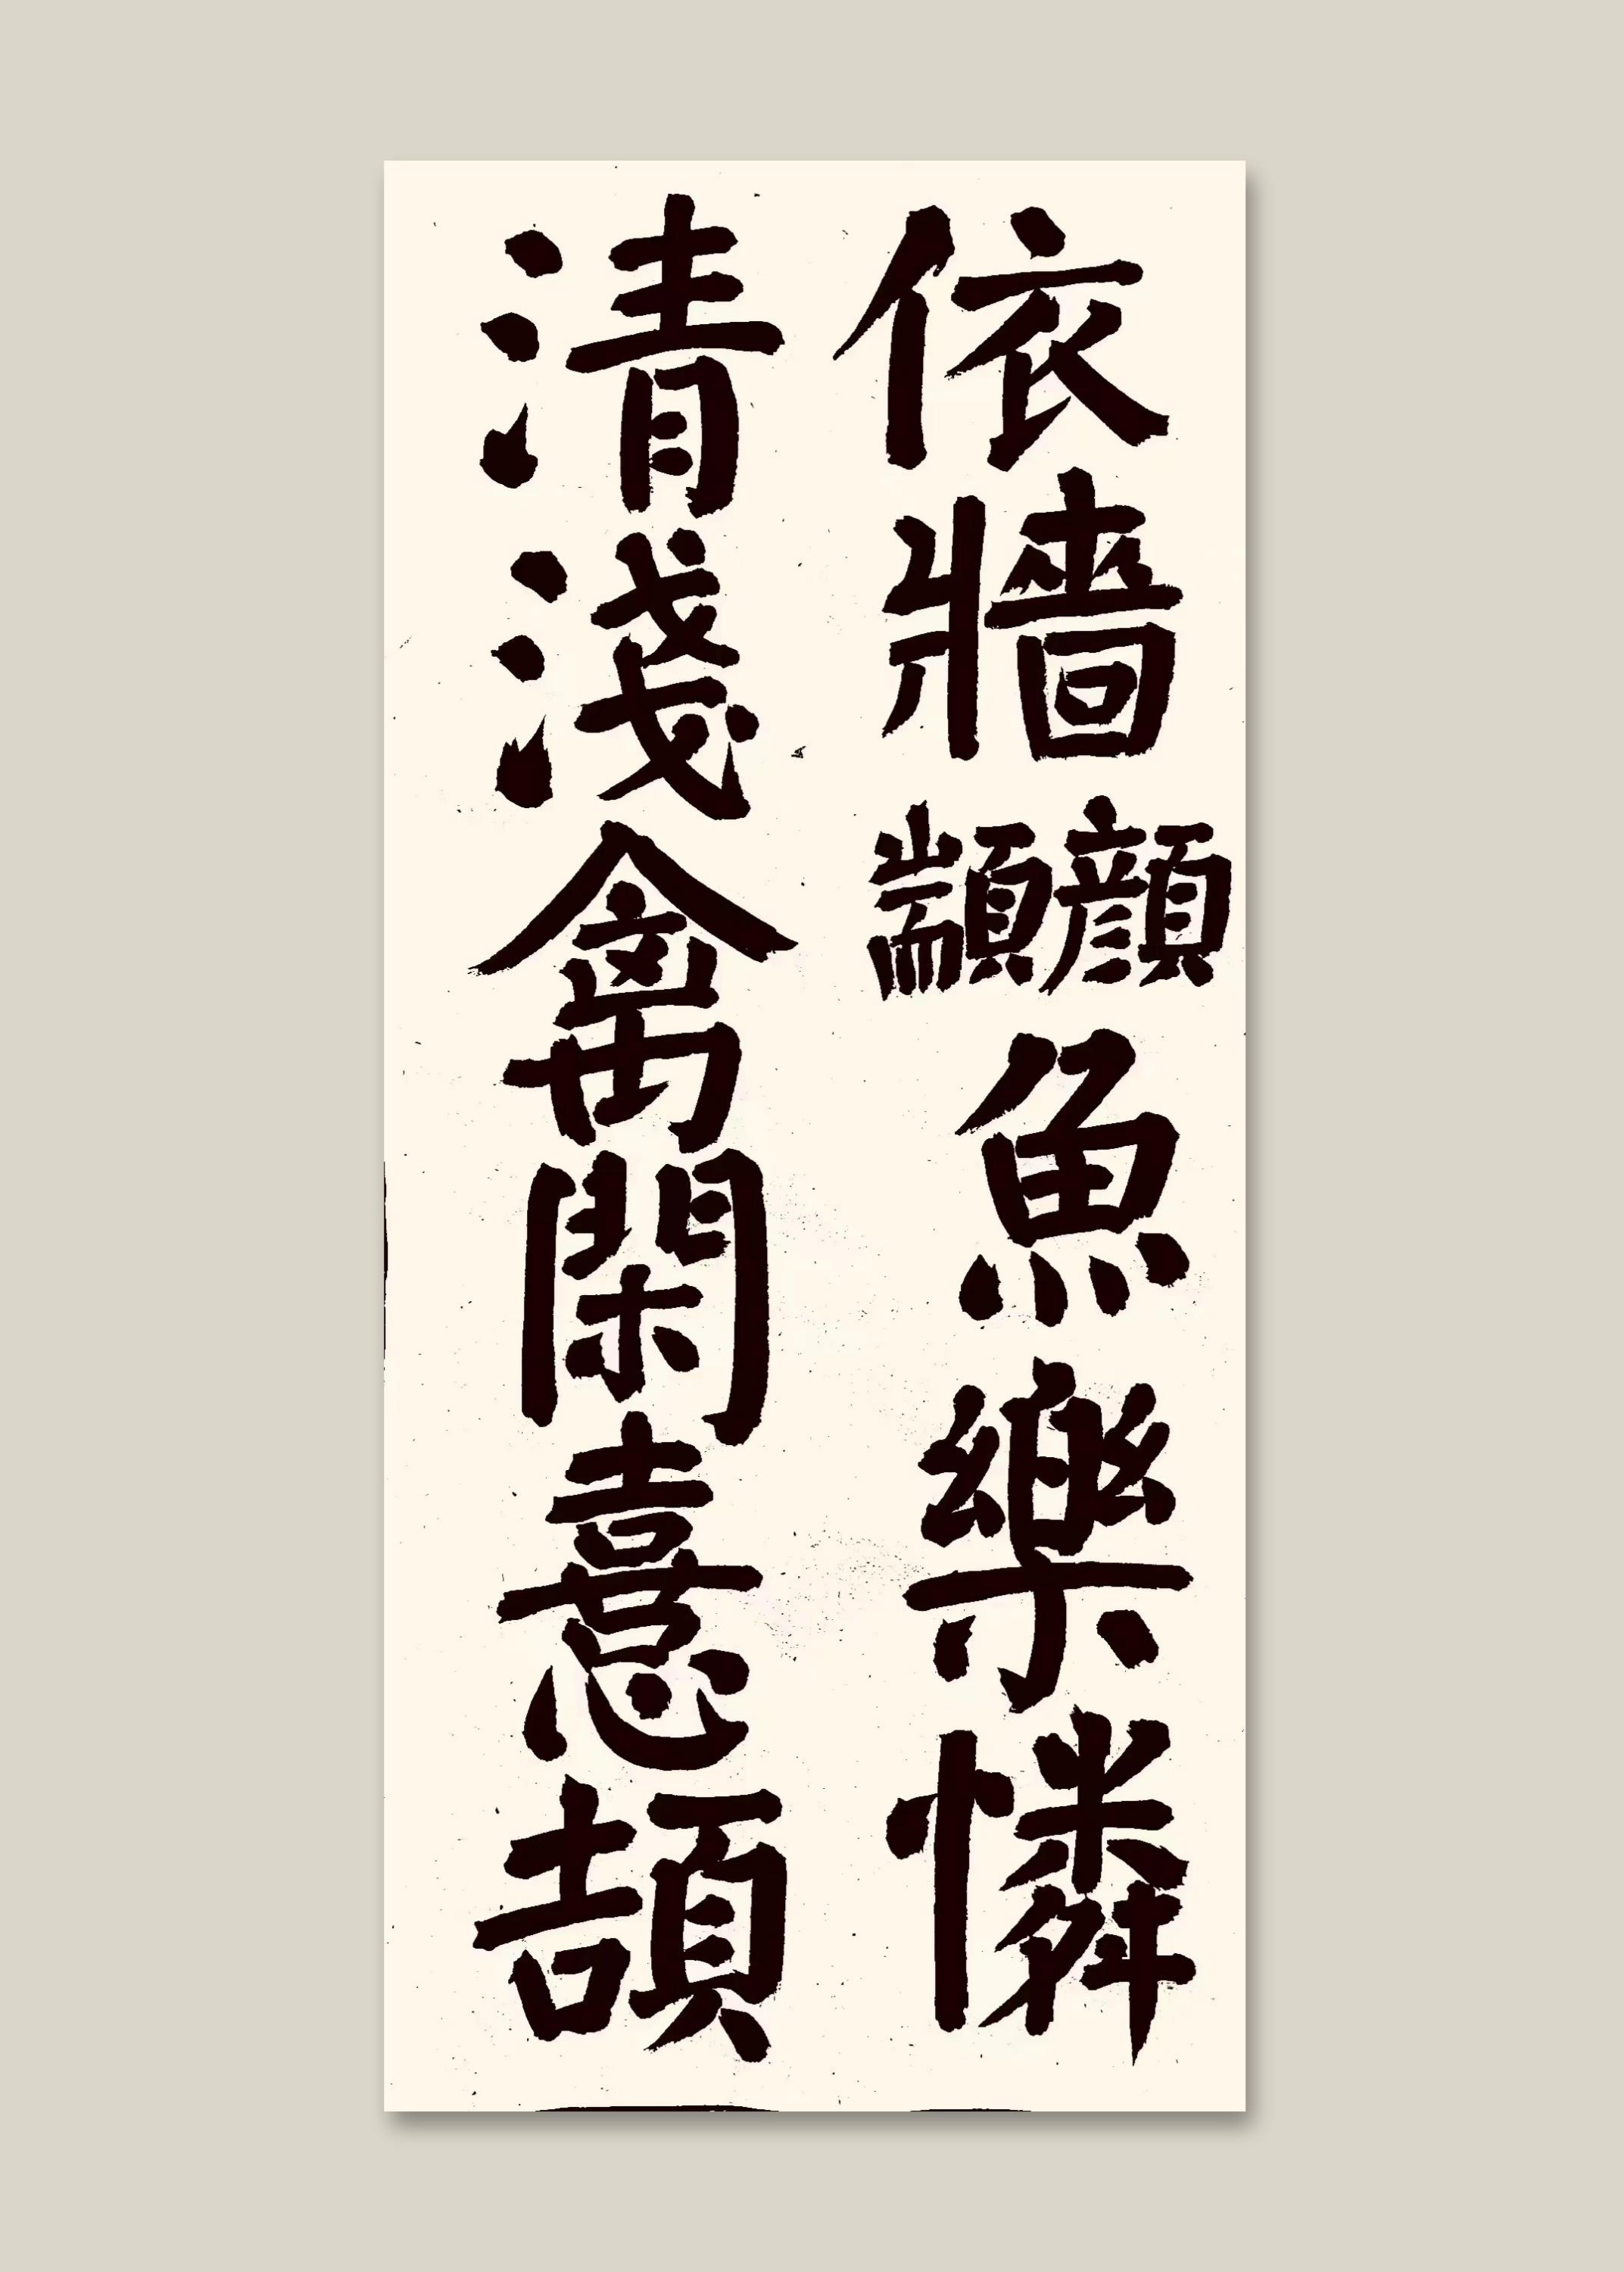 依牆顏顓魚樂憐
清淺禽閑憙頡